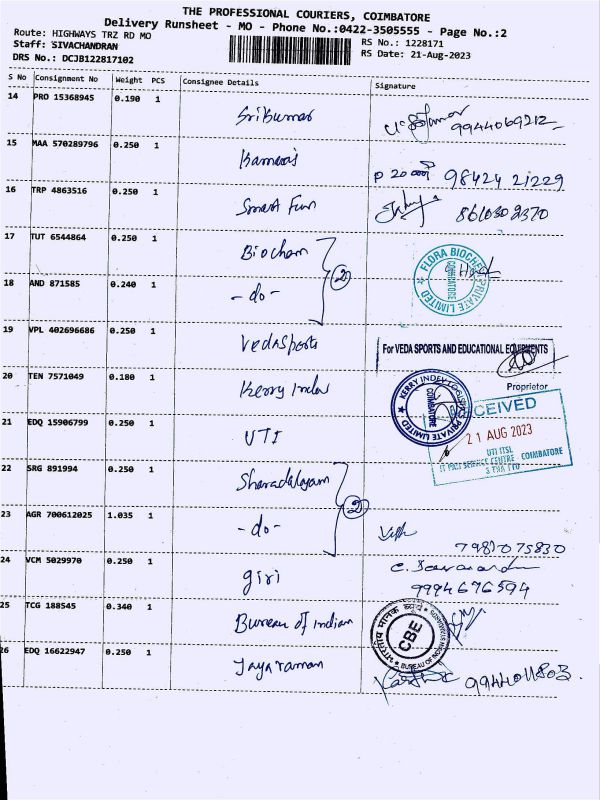 THE PROFESSIONAL COURIERS, COIMBATORE
Delivery Runsheet - MO - Phone No.:0422-3505555 - Page No.:2
Route: HIGHWAYS TRZ RD MO
RS No.: 1228171
Staff: SIVACHANDRAN
RS Date: 21-Aug-2023
DRS No.: DCJB122817102
S No Consignment No Weight PCS Consignee Details Signature
14 PRO 15368945 0.190 1 SriKumar 9944069212
15 MAA 570289796 0.250 1 98424 21229
16 TRP 4863516 0.250 1 Smart Fun
17 TUT 6544864 0.250 1 Biochem
FLORA BIOCHEM PRIVATE LIMITED COIMBATORE
18 AND 871585 0.240 1 -do- 2
19 VPL 402696686 0.250 1 VedaSports
For VEDA SPORTS AND EDUCATIONAL EQUIPMENTS
Proprietor
20 TEN 7571049 0.180 1 Kerry Indev
KERRY INDEV LOGISTICS PRIVATE LIMITED COIMBATORE
21 EDQ 15906799 0.250 1 UTI
RECEIVED
21 AUG 2023
UTI ITSL
COIMBATORE
22 SRG 891994 0.250 1 Sharadalayam
23 AGR 700612025 1.035 1 -do- 2
24 VCM 5029970 0.250 1 giri 9994676594
25 TCG 188545 0.340 1 Bureau of Indian
भारतीय मानक ब्यूरो CBE BUREAU OF INDIAN STANDARDS
26 EDQ 16622947 0.250 1 Jayaraman 9944011803